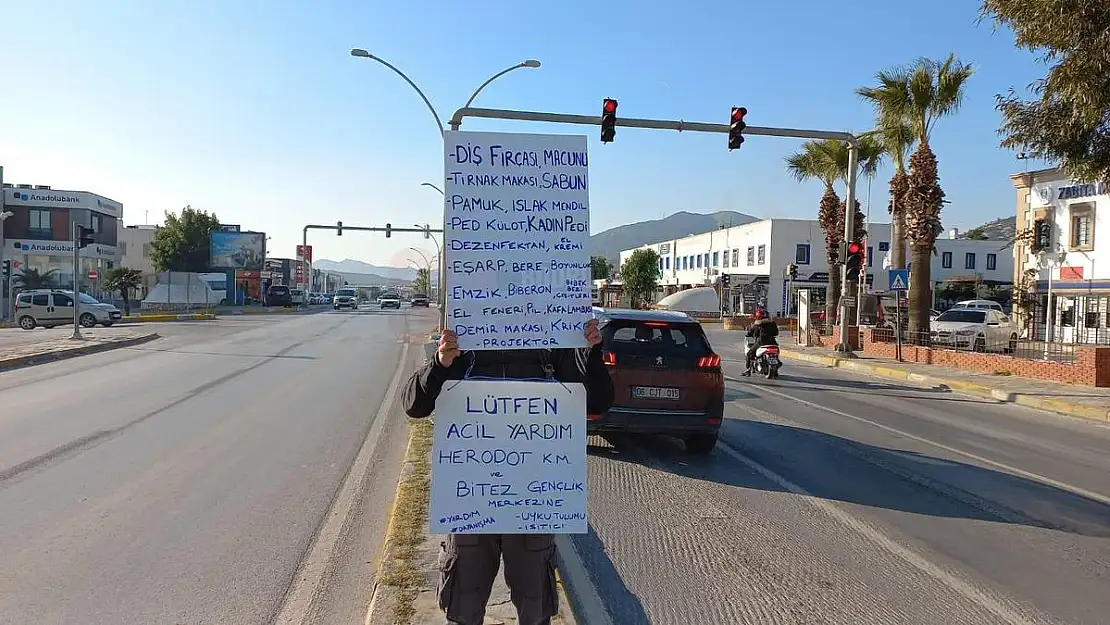 -DİŞ FIRÇASI, MACUNU
-TIRNAK MAKASI, SABUN
-PAMUK, ISLAK MENDİL
-PED KÜLOT, KADIN PEDİ
-DEZENFEKTAN, EL KREMİ
-EŞARP, BERE, BOYUNLUK
-EMZİK, BİBERON, BEBEK BEZİ ÇEŞİTLERİ
-EL FENERİ, PİL, KAFA LAMBASI
DEMİR MAKASI, KRİKO
-PROJEKTÖR
LÜTFEN
ACİL YARDIM
HERODOT K.M.
ve
BİTEZ GENÇLİK
MERKEZİNE
#YARDIM -UYKU TULUMU
#DAYANIŞMA -ISITICI
Anadolubank
Anadolubank
06 CJT 015
ZABITA